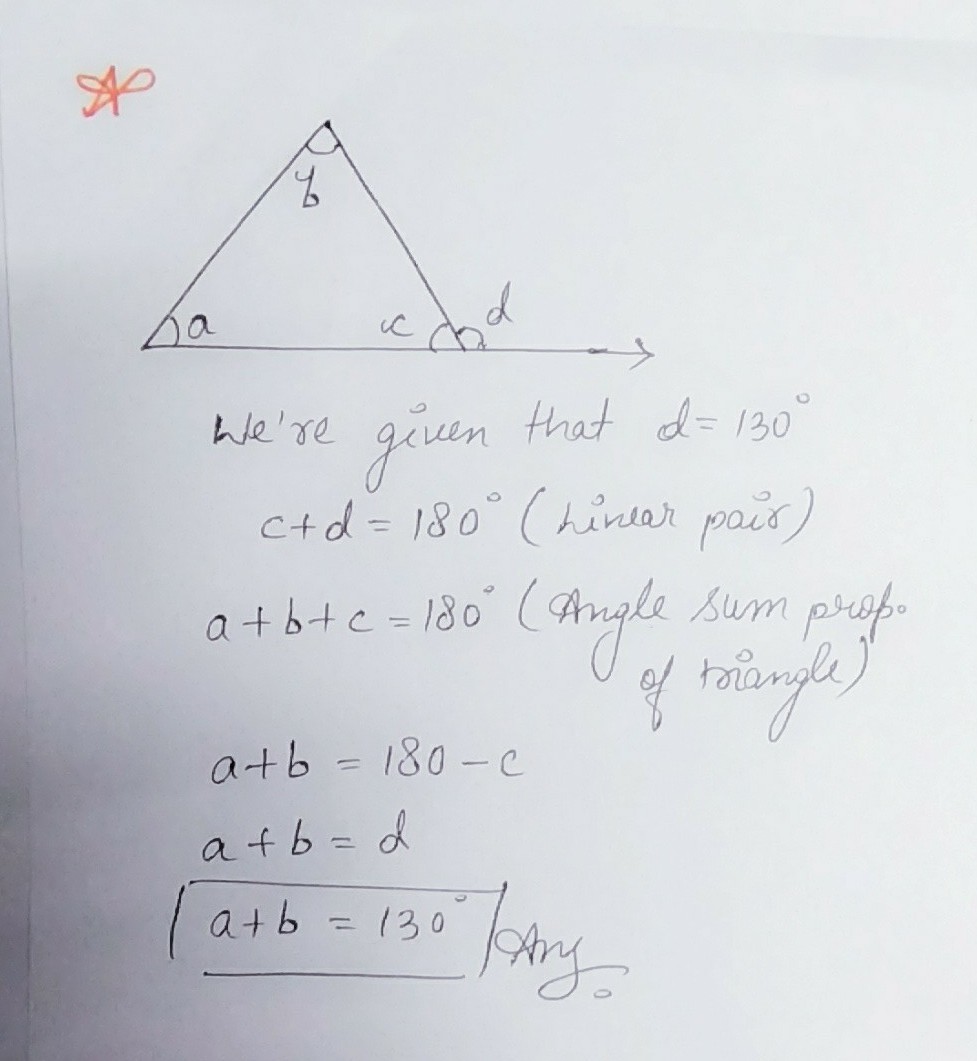 b
a c d
We're given that d = 130°
c + d = 180° (Linear pair)
a + b + c = 180° (Angle sum prop.
of triangle)
a + b = 180 - c
a + b = d
a + b = 130° Ans.